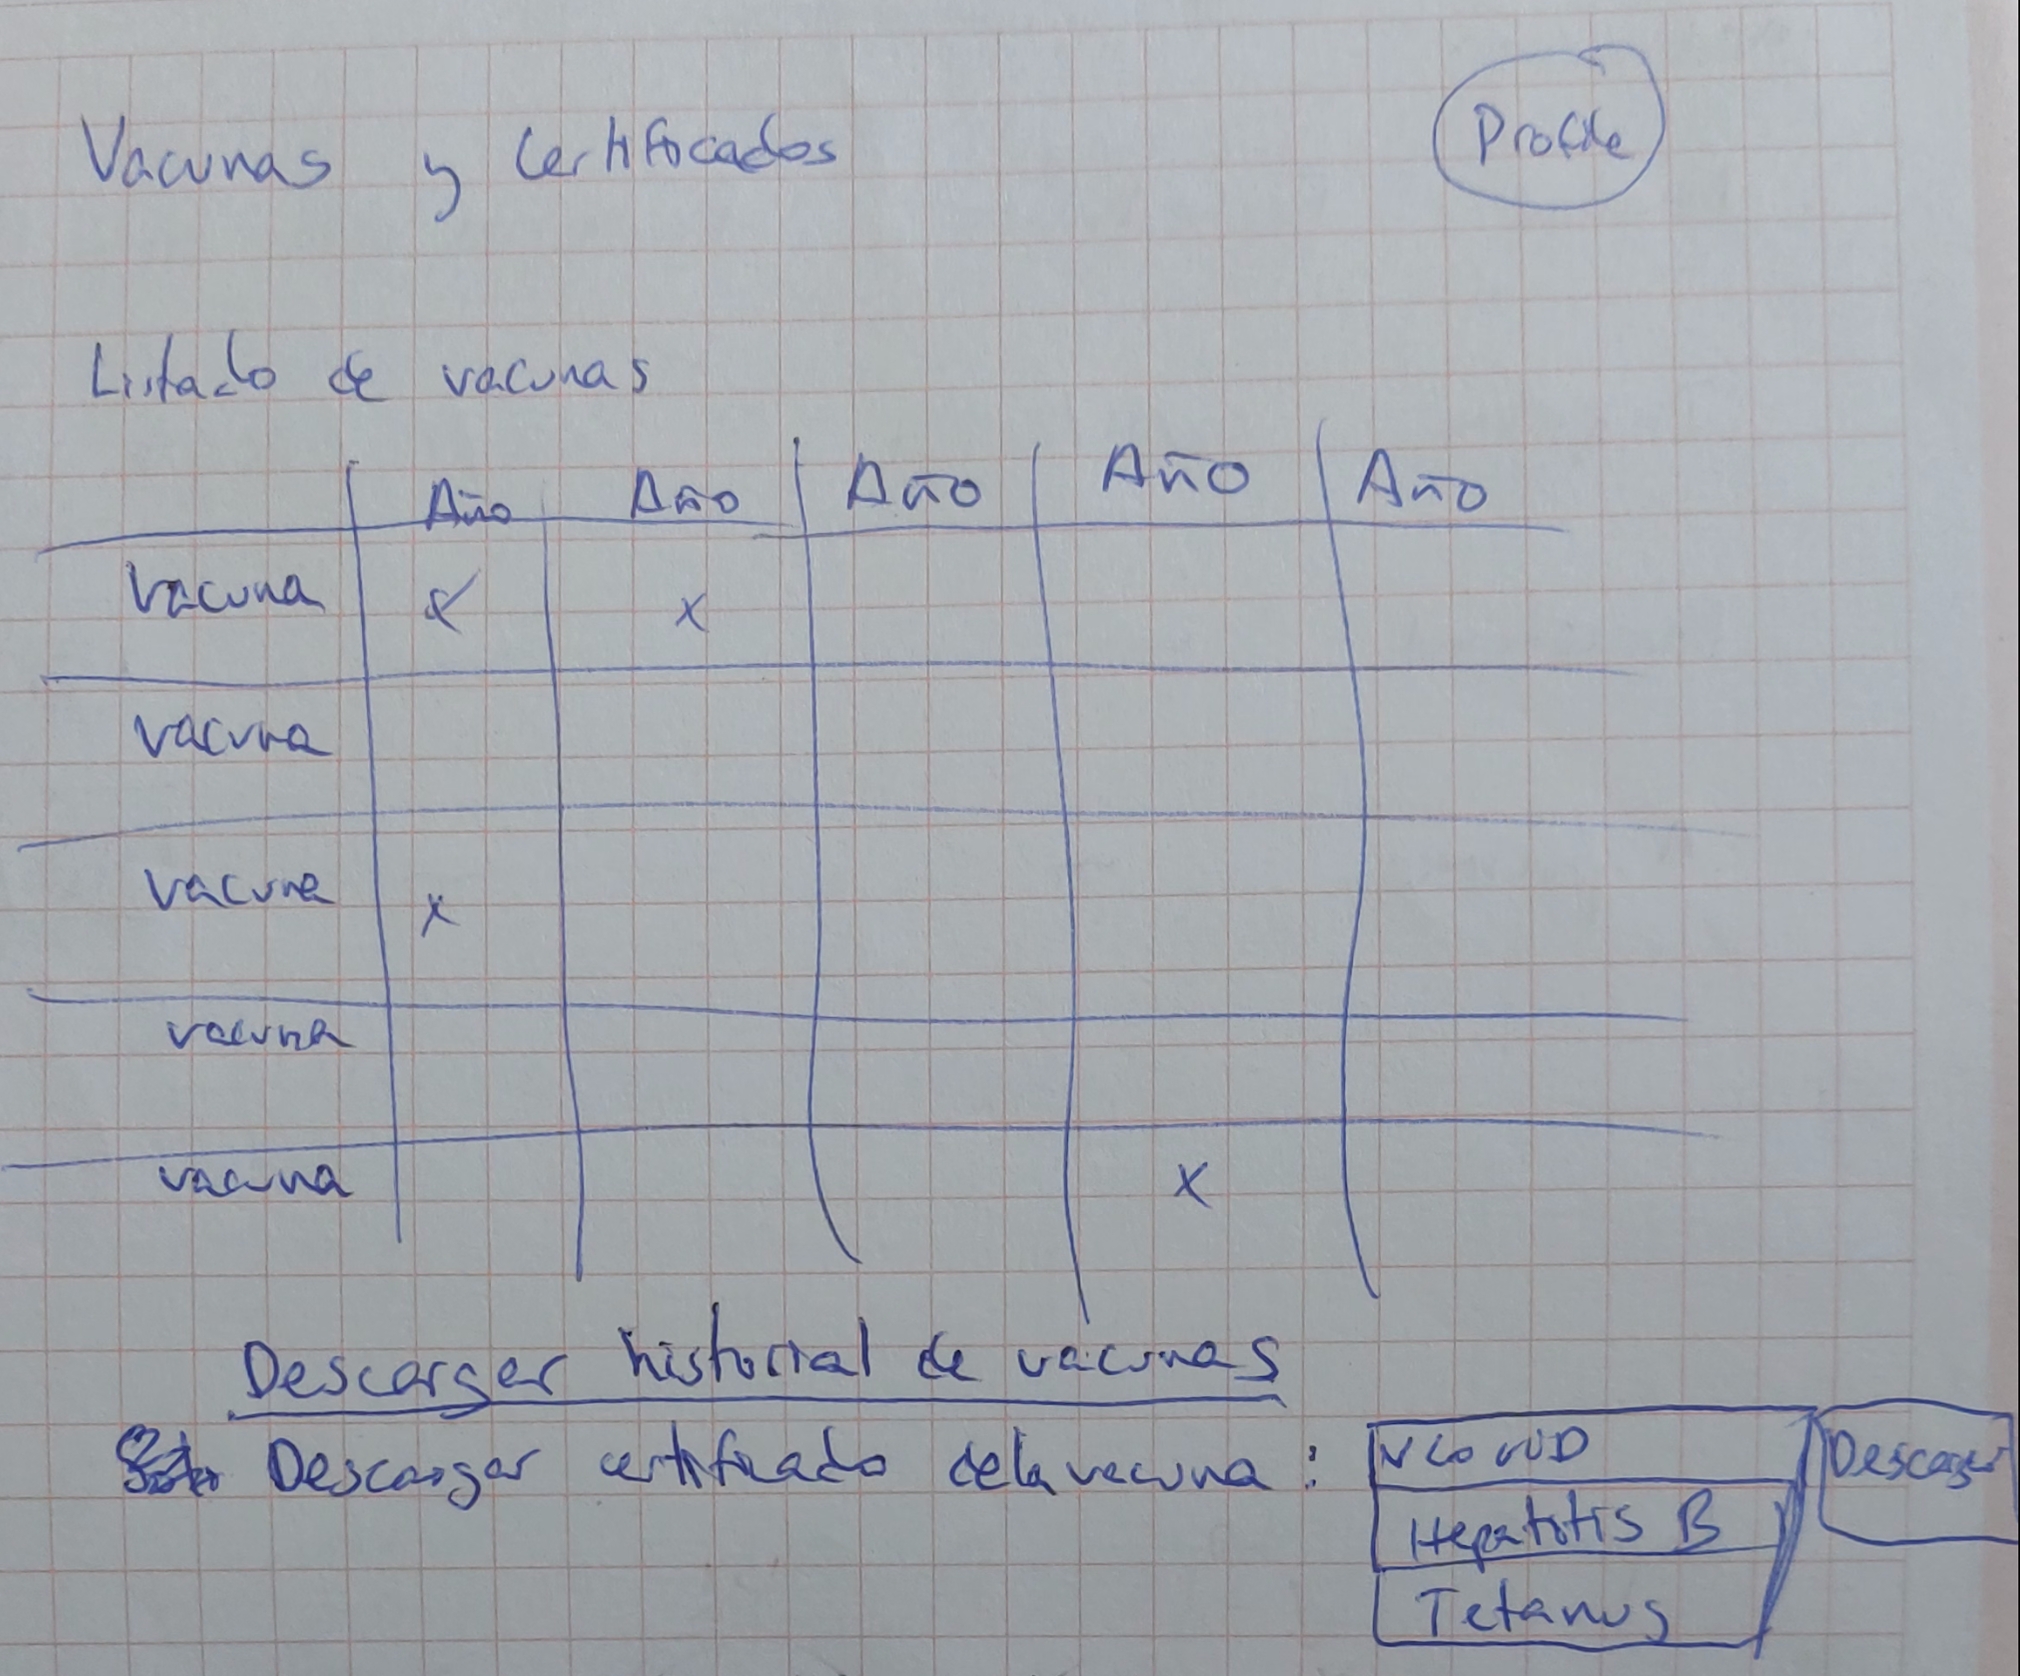 Vacunas y Certificados
Profile
Listado de vacunas
Año Año Año Año Año
Vacuna x x
vacuna
vacuna x
vacuna
vacuna x
Descargar historial de vacunas
Descargar certificado de la vacuna :
COVID
Descargar
Hepatitis B
Tetanus